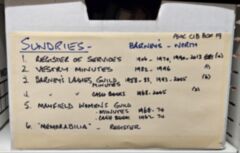 SUNDRIES - BARNEY'S - NORTH
1. REGISTER OF SERVICES
2. VESTRY MINUTES 1982 - 1996
3. BARNEY'S LADIES GUILD MINUTES 1958 - 83, 1993 - 2005
4. " " " CASH BOOKS 1968 - 2005
5. MANIFOLD WOMEN'S GUILD
- MINUTES 1968 - 70
- CASH BOOK 1962 - 70
6. "MEMORABILIA" - REGISTER